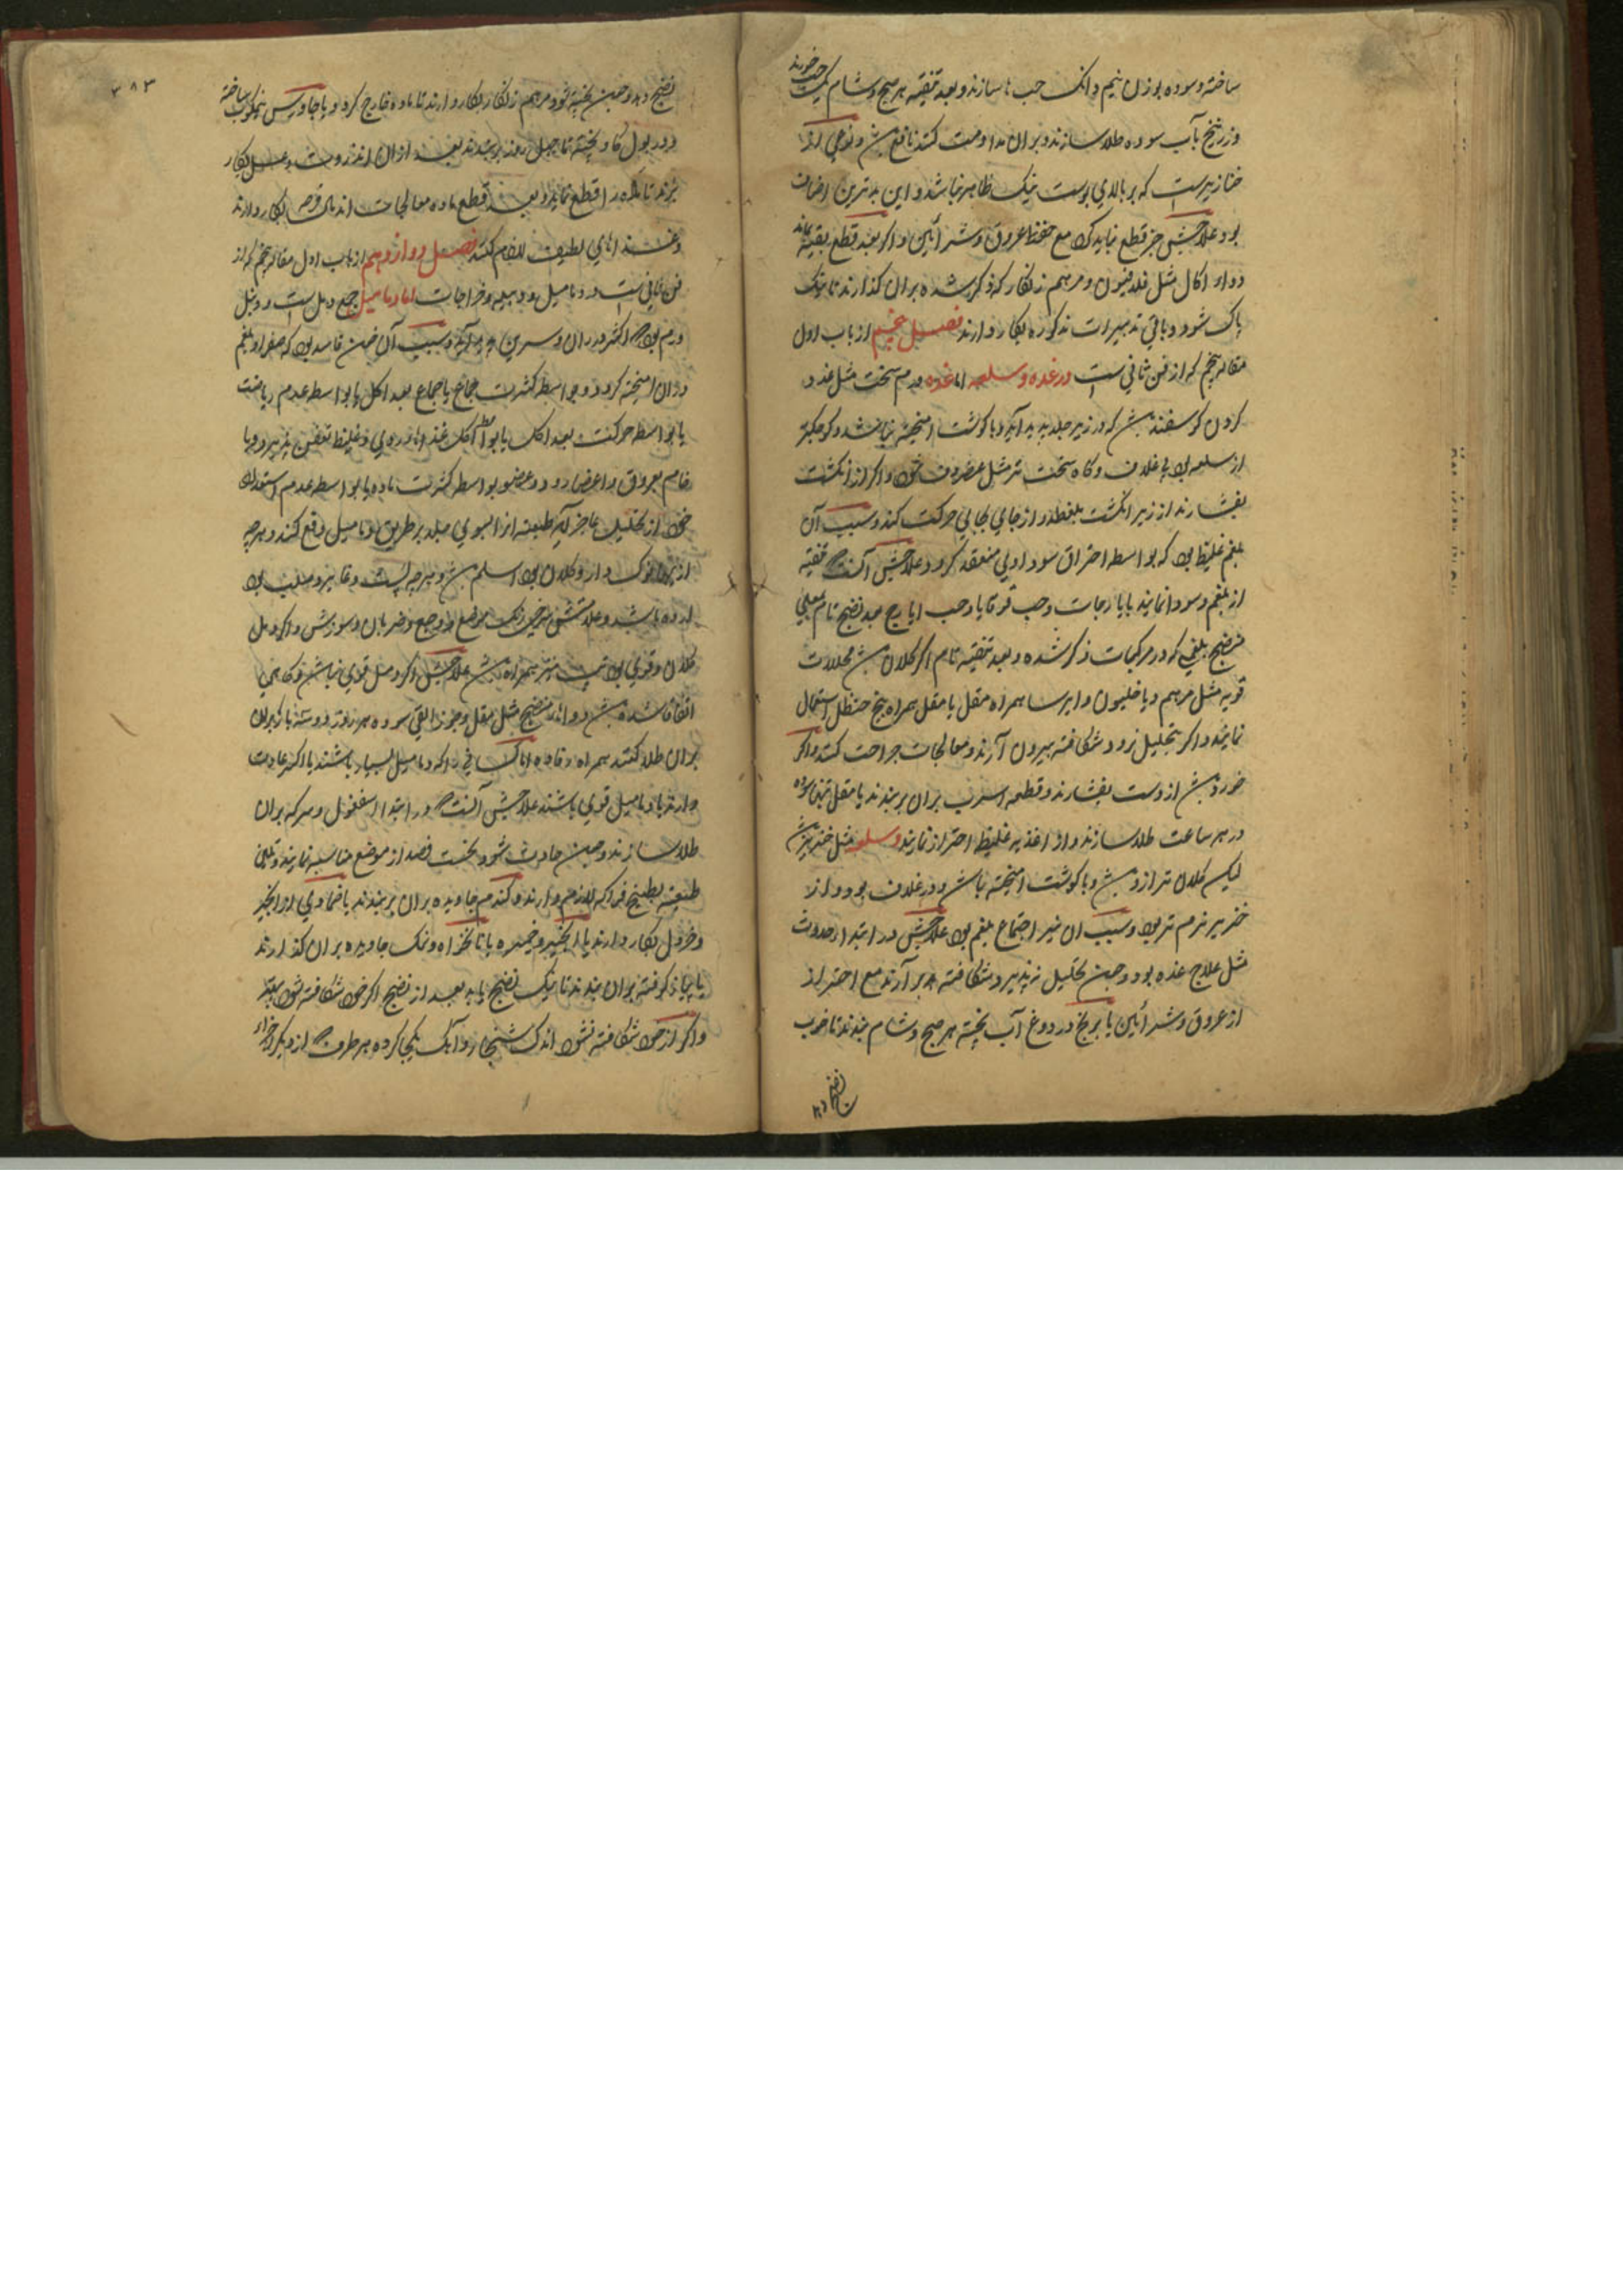 ساخته و سوده بوزن نیم دانک حب ها سازند و بعد تنقیه هر صبح و شام یک حب خورند
و زرنیخ بآب سوده طلا سازند و بران مداومت کنند نافع بش و نوعی از
خنازیرست که بر بالای پوست نیک ظاهر نباشد و این بدترین اصناف
بود علاجش جز قطع نباید کرد مع حفظ عروق و شرائین و اکر بعد قطع بقیه بماند
دواء اکال مثل فلدفیون و مرهم زنکار که ذکر شده بران کذارند تا نیک
پاک شود و باقی تدبیرات مذکوره بکار دارند فصل پنجم از باب اول
مقاله پنجم که از فن ثانی ست در غده و سلعه اما غده ورم سخت مثل غدد
کردن کوسفند بش که در زیر جلد پدید آید و با کوشت امیخته نباشد و کوچکتر
از سلعه بود بی غلاف و کاه سخت تر مثل غضروف شود و اکر از انکشت
بفشارند از زیر انکشت بلغطد و از جای بجای حرکت کند و سبب آن
بلغم غلیظ بود که بواسطه احتراق سوداوی منعقد کردد علاجش آنست که تنقیه
از بلغم و سودا نمایند بایارجات و حب قوقایا و حب ایارج بعد نضج تام بمعلی
منضج بلغمی که در مرکبات ذکر شده و بعد تنقیه تام اکر کلان بش محللات
قویه مثل مرهم دیاخلیون و ایرسا همراه مقل یا مقل همراه بیخ حنظل استعمال
نمایند و اکر بتحلیل نرود شکافته بیرون آرند و معالجات جراحت کنند و اکر
خورد بش از دست بفشارند و قطعه اسرب بران بربندند یا مقل بتنها سوده
در هر ساعت طلا سازند و از اغذیه غلیظ احتراز نمایند و سلعه مثل خنزیر بش
لیکن کلان تر ازو بش و با کوشت امیخته باش و در غلاف بود و از
خنزیر نرم تر بود و سبب ان نیز اجتماع بلغم بود علاجش در ابتداء حدوث
مثل علاج غده بود و چون تحلیل نپذیرد شکافته بر آرند مع احتراز
از عروق و شرائین یا برنج در دوغ آب پخته هر صبح و شام بندند تا خوب
نضج دهد
۳۸۳
نضج دهد و چون پخته شود مرهم زنکار بکار دارند تا ماده خارج کردد و یا جاورس نیمکوب ساخته
در بول کاو پخته تا چهل روز بربندند بعد ازان انذروت و عسل بکار
برند تا ماده را قطع نماید و بعد قطع ماده معالجات اندمال قرحه بکار دارند
و غذاهای لطیف للغام کنند فصل دوازدهم از باب اول مقاله پنجم که از
فن ثانی ست در دمامیل و دبیله و خراجات اما دمامیل جمع دمل ست و دمل
ورم بود که اکثر در ران و سرین بر آید و سبب آن خون فاسد بود که صفرا و بلغم
دران امیخته کردد و بواسطه کثرت جماع یا جماع بعد اکل یا بواسطه عدم ریاضت
یا بواسطه حرکت بعد اکل یا بواسطه اکل غذاهاء ردی و غلیظ تعفن پذیرد و یا
خام بعروق و اعضا رود و عضو بواسطه کثرت ماده یا بواسطه عدم استعداد
خود از تحلیل عاجز آید طبیعت انرا بسوی جلد بر طریق دمامیل دفع کند و هرچه
ازینها نوک دار و کلان بود اسلم بش و هرچه پست و غایر و صلب بود
بدتر باشد و علامتش سرخی رنک موضع و وجع و ضربان و سوزش و اکر دمل
کلان و قوی بود تب نیز همراه بش علاجش اکر دمل قوی نباش و کاهی
اتفاقا شده بش دواهاء منضج مثل مقل و جوز القی سوده هر روز دو سه بار بران
بران طلا کنند همراه رفاده اما کسانی را که دمامیل بسیار باشند یا اکثر عادت
دارند یا دمامیل قوی باشند علاجش آنست که در ابتدا اسفغول و سرکه بران
طلا سازند و چون حادث شود نخست فصد از موضع مناسبه نمایند و تلیین
طبیعت بطبیخ فواکه لازم دارند و کندم جاویده بران بربندند یا ضمادی از انجیر
و خردل بکار دارند یا انجیر و خمیره یا نانخواه و نمک جاویده بران کذارند
یا پیاز کوفته بران بندند تا نیک نضج یابد بعد از نضج اکر خود شکافته شود بهتر
و اکر از خود شکافته نشود اندک شنجار و آهک یکجا کرده بهر طرف که از دیکر اجزاء